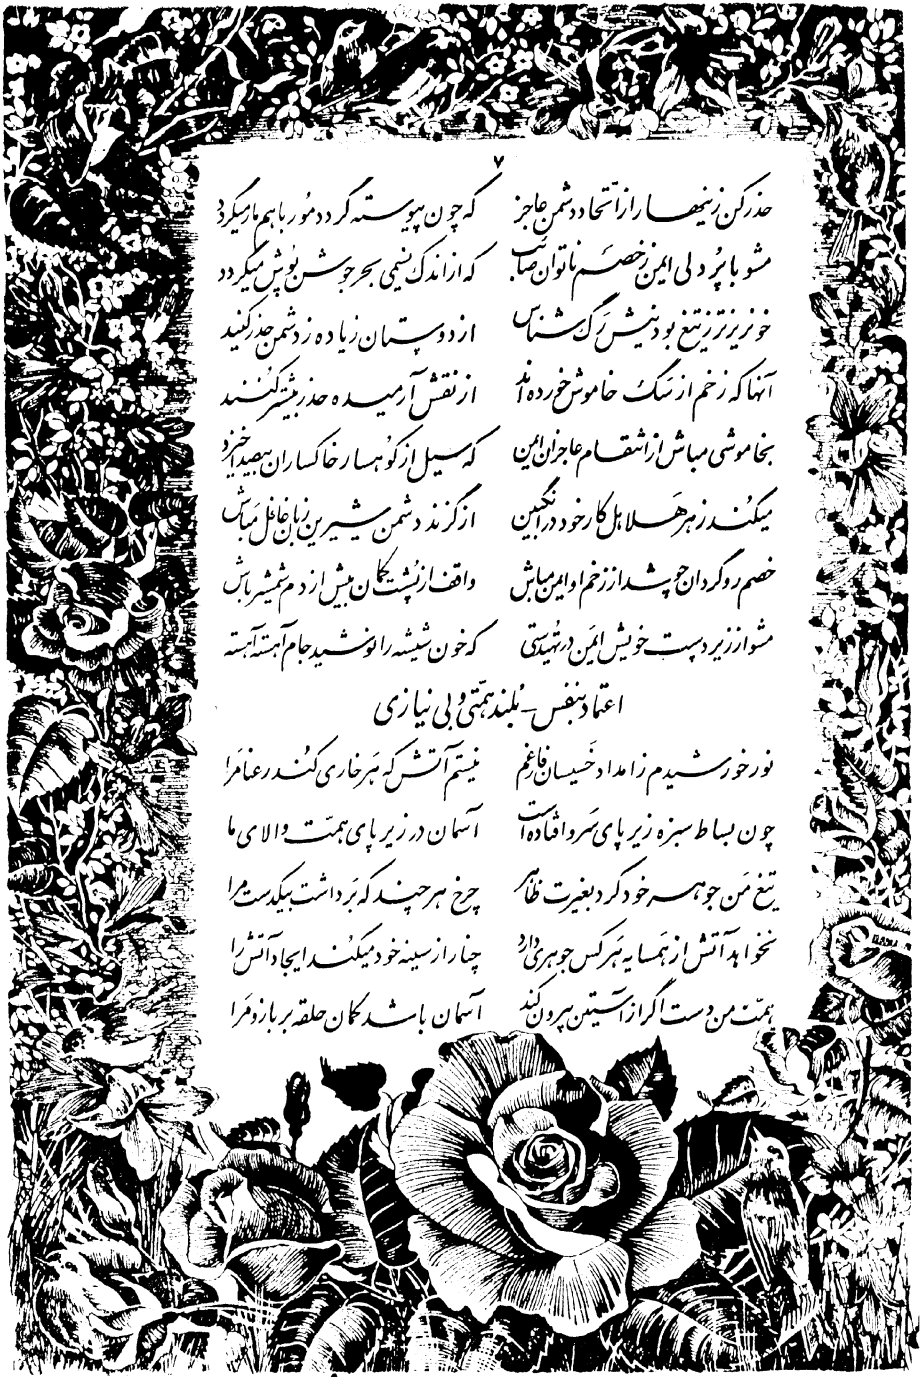 ۷
حذر کن زینهار از اتحاد دشمن عاجز که چون پیوسته گردد مور با هم مار میگردد
مشو با پُر دلی ایمن ز خصم ناتوان صائب که از اندک نسیمی بحر جوشن پوش میگردد
خونریزتر ز تیغ بود نیش رگ شناس از دوستان زیاده ز دشمن حذر کنید
آنها که زخم از سگ خاموش خورده اند از نقش آرمیده حذر بیشتر کنند
بخاموشی مباش از انتقام عاجزان ایمن که سیل از کوهسار خاکساران بیصدا خیزد
میکند زهر هلاهل کار خود در انگبین از گزند دشمن شیرین زبان غافل مباش
خصم روگردان چو شد از زخم او ایمن مباش واقف از پشت کمان بیش از دم شمشیر باش
مشو از زیردست خویش ایمن در تهیدستی که خون شیشه را نوشید جام آهسته آهسته
اعتماد بنفس ـ بلند همتی و بی نیازی
نور خورشیدم ز امداد خسیسان فارغم نیستم آتش که هر خاری کند رعنا مرا
چون بساط سبزه زیر پای سرو افتاده است آسمان در زیر پای همّت والای ما
تیغ من جوهر خود کرد بغیرت ظاهر چرخ هر چند که برداشت بیکدست مرا
نخواهد آتش از همسایه هر کس جوهری دارد چنار از سینه خود میکند ایجاد آتش را
همّت من دست اگر از آستین بیرون کند آسمان باشد کمان حلقه بر بازو مرا